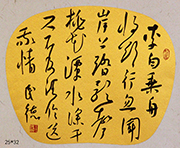 李白乘舟
将欲行忽闻
岸上踏歌声
桃花潭水深千
尺不及汪伦送
我情
25*32